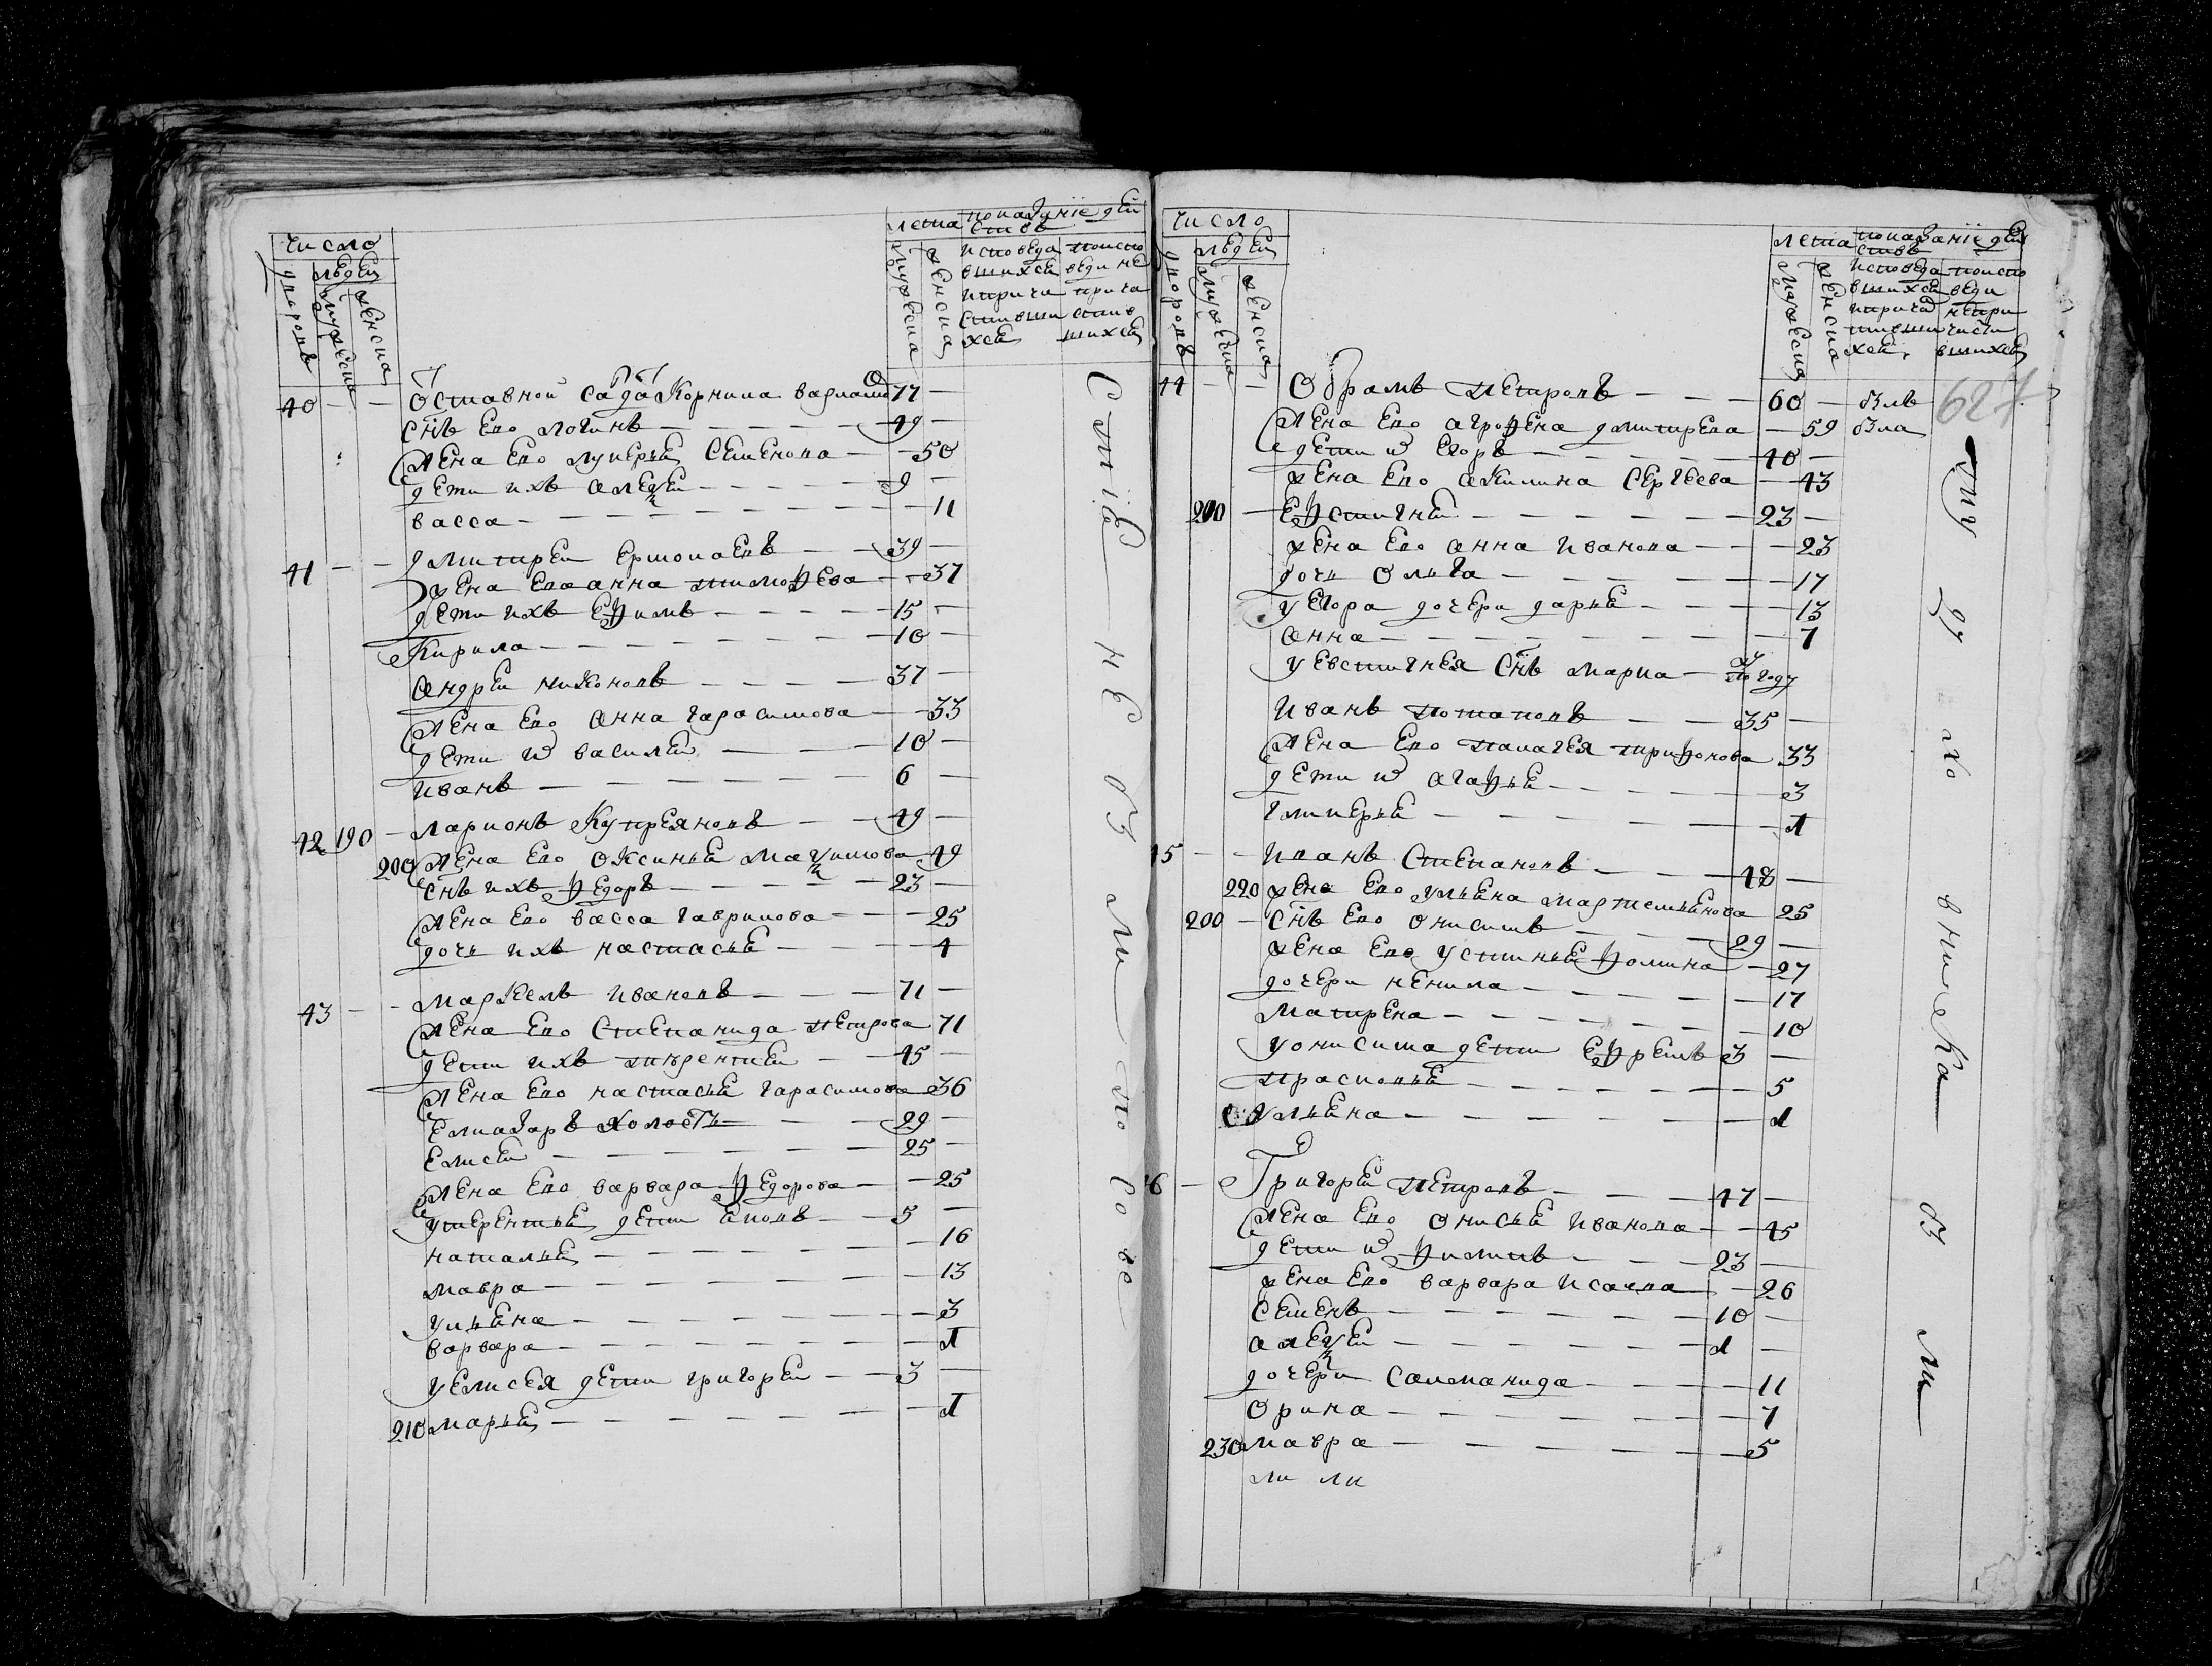 число
людей
дворовъ
мужеска
женска
лета
показание дей
ствъ
мужеска
женска
исповеда
вшихся
и прича
стивши
хся
по испо
веди не
прича
стив
шихся
40 Оставной салдатъ Корнила 77
снъ ево логинъ 49
жена ево лукерья Семенова 50
дети ихъ алеѯей 9
васса 11
41 дмитрей ермолаевъ 39
жена ево анна тимоѳева 37
дети ихъ еѳимъ 15
Кирила 10
андрей никоновъ 37
жена ево анна гарасимова 33
дети ѿ василей 10
иванъ 6
42 190 ларионъ Купреяновъ 49
200 жена ево оксинья маѯимова 49
снъ ихъ ѳедоръ 23
жена ево васса гаврилова 25
дочь ихъ настасья 4
43 маркелъ ивановъ 71
жена ево Степанида петрова 71
дети ихъ терентей 45
жена ево настасья гарасимова 36
елиазаръ холостъ 29
елисей 25
жена ево варвара ѳедорова 25
у терентья дети 5
наталья 16
мавра 13
ульяна 3
варвара 1
у елисея дети григорей 3
210 марья 1
число
людей
дворовъ
мужеска
женска
лета
показание дей
ствъ
мужеска
женска
исповеда
вшихся
и прича
стивши
хся
по испо
веди
не при
части
вшихся
627
44 Обрамъ петровъ 60 былъ
жена ево агроѳена дмитрева 59 была
дети ѿ егоръ 40
жена ево акилина сергеева 43
200 еѵстигней 23
жена ево анна иванова 23
дочь ольга 17
у егора дочери дарья 13
анна 7
у евстигнея снъ марка полугоду
иванъ потаповъ 35
жена ево палагея триѳонова 33
дети ѿ агаѳья 3
гликерья 1
45 иванъ Степановъ 48
220 жена ево ульяна мартемьянова 25
200 снъ ево онисимъ 29
жена ево устинья ѳомина 27
дочери ненила 17
матрена 10
у онисима дети еѳремъ 3
прасковья 5
ульяна 1
46 Григорей петровъ 47
жена ево онисья иванова 45
дети ѿ ѳилипъ 23
жена ево варвара исаева 26
семенъ 10
алеѯей 1
дочери саломанида 11
орина 7
230 мавра 5